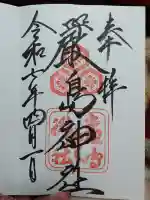 奉拝
嚴島神社
令和六年四月一日